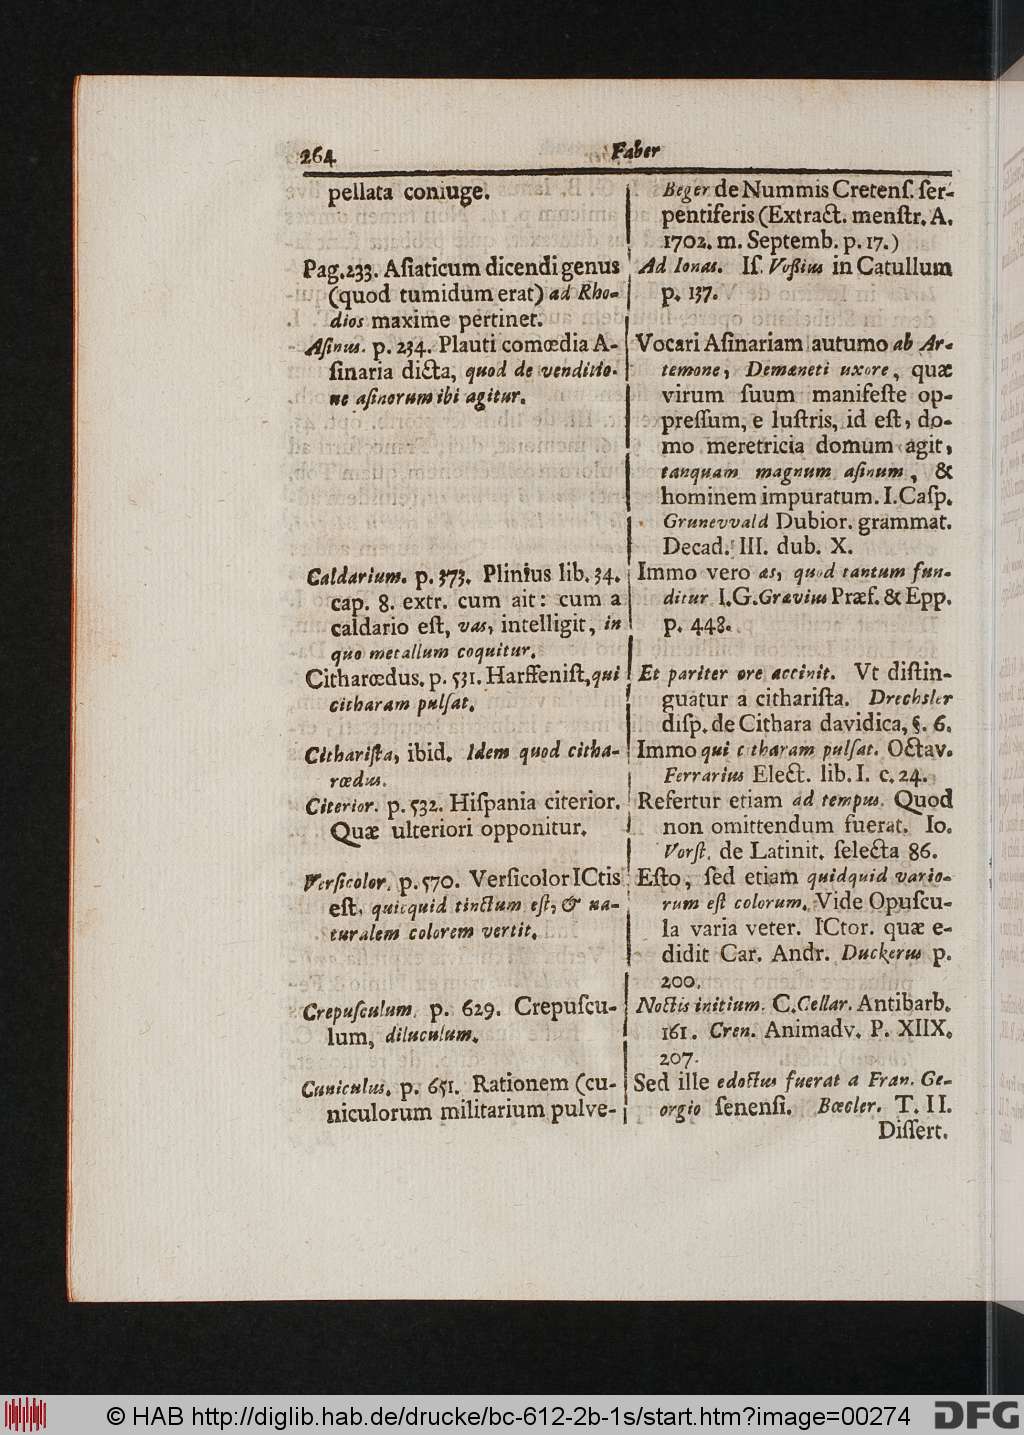 264 Faber
pellata coniuge.
Pag. 233. Aſiaticum dicendi genus
(quod tumidum erat) ad Rho-
dios maxime pertinet.
Aſinus. p. 234. Plauti comœdia A-
ſinaria dicta, quod de venditio-
ne aſinorum ibi agitur.
Caldarium. p. 373. Plinius lib. 34.
cap. 8. extr. cum ait: cum a
caldario eſt, vas, intelligit, in
quo metallum coquitur.
Citharœdus. p. 531. Harffeniſt, qui
citharam pulſat.
Cithariſta, ibid. Idem quod citha-
rœdus.
Citerior. p. 532. Hiſpania citerior.
Quæ ulteriori opponitur.
Verſicolor. p. 570. Verſicolor ICtis
eſt, quicquid tinctum eſt, & na-
turalem colorem vertit.
Crepuſculum. p. 629. Crepuſcu-
lum, diluculum.
Cuniculus. p. 651. Rationem (cu-
niculorum militarium pulve-
Beger de Nummis Cretenſ. ſer-
pentiferis (Extract. menſtr. A.
1702. m. Septemb. p. 17.)
Ad Ionas. Iſ. Voſſius in Catullum
p. 137.
Vocari Aſinariam autumo ab Ar-
temone, Demæneti uxore, quæ
virum ſuum manifeſte op-
preſſum, e luſtris, id eſt, do-
mo meretricia domum agit,
tanquam magnum aſinum, &
hominem impuratum. I. Caſp.
Grunevvald Dubior. grammat.
Decad. III. dub. X.
Immo vero æs, quod tantum fun-
ditur I. G. Grævius Præf. & Epp.
p. 448.
Et pariter ore accinit. Vt diſtin-
guatur a cithariſta. Drechsler
diſp. de Cithara davidica, §. 6.
Immo qui citharam pulſat. Octav.
Ferrarius Elect. lib. I. c. 24.
Refertur etiam ad tempus. Quod
non omittendum fuerat. Io.
Vorſt. de Latinit. ſelecta 86.
Eſto, ſed etiam quidquid vario-
rum eſt colorum. Vide Opuſcu-
la varia veter. ICtor. quæ e-
didit Car. Andr. Duckerus p.
200.
Noctis initium. C. Cellar. Antibarb.
161. Cren. Animadv. P. XIIX.
207.
Sed ille edoctus fuerat a Fran. Ge-
orgio ſenenſi. Bœcler. T. II.
Diſſert.
© HAB http://diglib.hab.de/drucke/bc-612-2b-1s/start.htm?image=00274
DFG